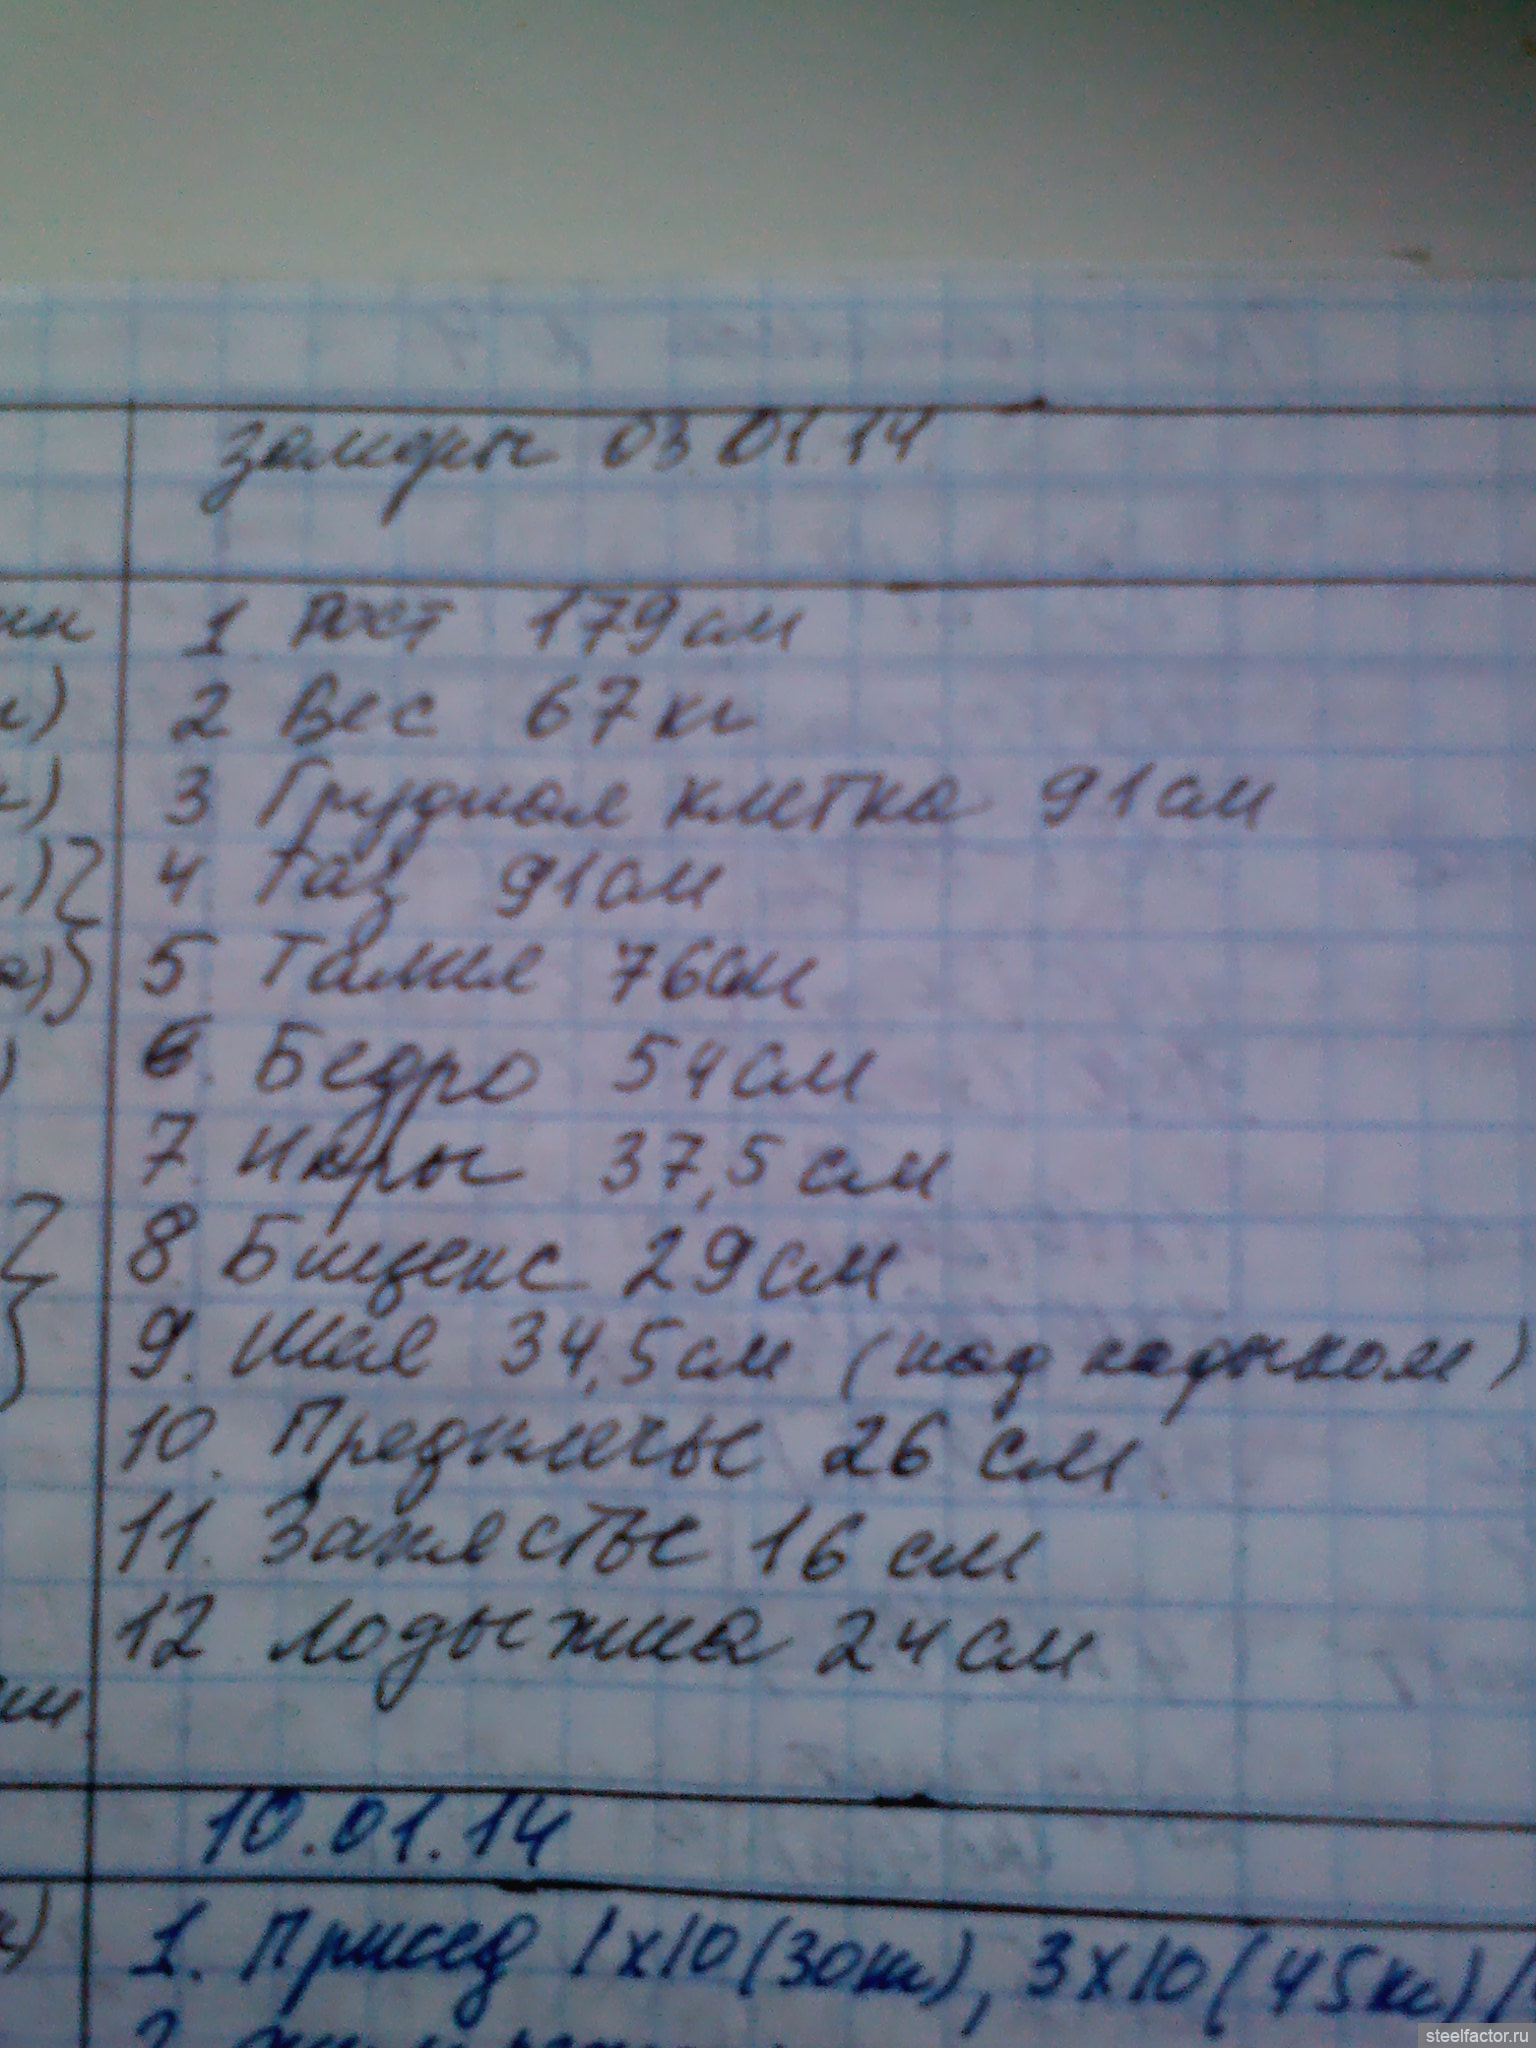 замеры 03.01.14
1 Рост 179см
2 Вес 67кг
3 Грудная клетка 91см
4 Таз 91см
5 Талия 76см
6. Бедро 54см
7. Икры 37,5см
8. Бицепс 29см
9. Шая 34,5см (над кадыком)
10. Предплечье 26 см
11. Запястье 16 см
12 лодыжка 24см
10.01.14
1. Присед 1х10(30кг), 3х10(45кг)
steelfactor.ru